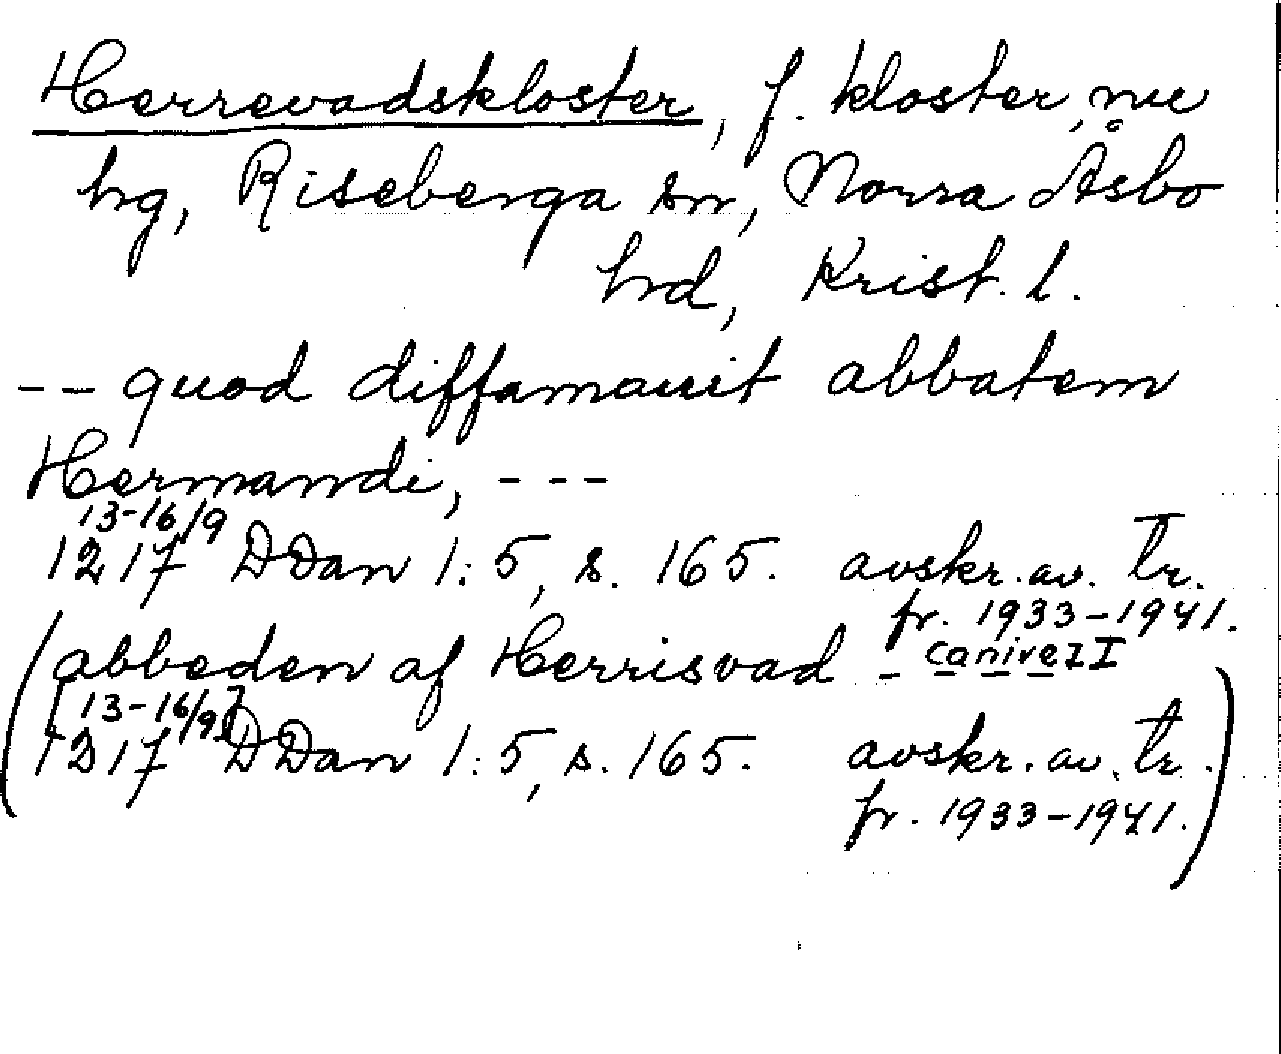 Herrevadskloster, f. kloster, nu
hg, Riseberga sn, Norra Åsbo
hd, Krist. l.
-- quod diffamauit abbatem
Hermandi, ---
13-16/9
1217 DDan 1:5, s. 165. avskr. av. tr.
fr. 1933-1941.
(abbeden af Herrisvad - Canivez I
[13-16/9]
1217 DDan 1:5, s. 165. avskr. av. tr.
fr. 1933-1941.)